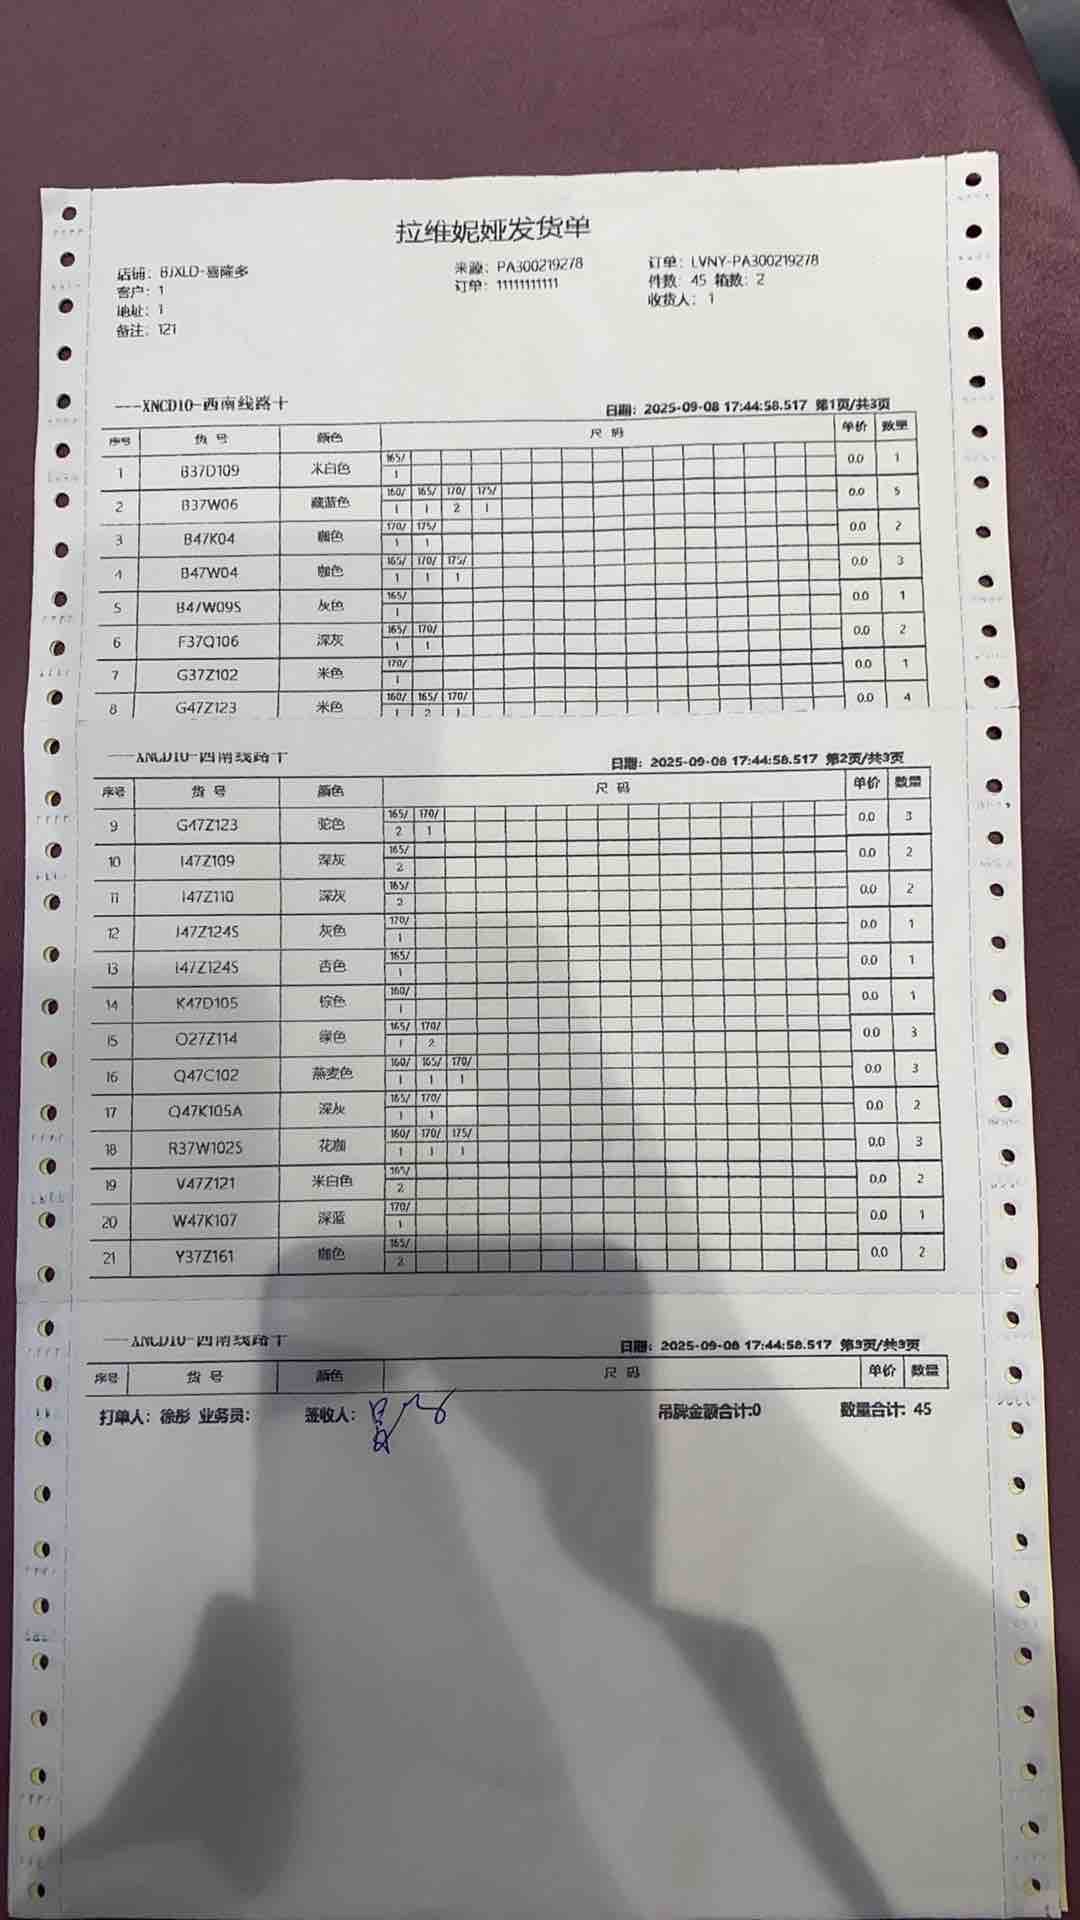 拉维妮娅发货单
店铺: BJXLD-喜隆多 来源: PA300219278 订单: LVNY-PA300219278
客户: 1 订单: 11111111111 件数: 45 箱数: 2
地址: 1 收货人: 1
备注: 121
---XNCD10-西南线路十 日期: 2025-09-08 17:44:58.517 第1页/共3页
序号 货号 颜色 尺码 单价 数量
165/
1 B37D109 米白色 1 0.0 1
160/ 165/ 170/ 175/
2 B37W06 藏蓝色 1 1 2 1 0.0 5
170/ 175/
3 B47K04 咖色 1 1 0.0 2
165/ 170/ 175/
4 B47W04 咖色 1 1 1 0.0 3
165/
5 B47W09S 灰色 1 0.0 1
165/ 170/
6 F37Q106 深灰 1 1 0.0 2
170/
7 G37Z102 米色 1 0.0 1
160/ 165/ 170/
8 G47Z123 米色 1 2 1 0.0 4
---XNCD10-西南线路十 日期: 2025-09-08 17:44:58.517 第2页/共3页
序号 货号 颜色 尺码 单价 数量
165/ 170/
9 G47Z123 驼色 2 1 0.0 3
165/
10 I47Z109 深灰 2 0.0 2
165/
11 I47Z110 深灰 2 0.0 2
170/
12 I47Z124S 灰色 1 0.0 1
165/
13 I47Z124S 杏色 1 0.0 1
160/
14 K47D105 棕色 1 0.0 1
165/ 170/
15 O27Z114 绿色 1 2 0.0 3
160/ 165/ 170/
16 Q47C102 燕麦色 1 1 1 0.0 3
165/ 170/
17 Q47K105A 深灰 1 1 0.0 2
160/ 170/ 175/
18 R37W102S 花咖 1 1 1 0.0 3
165/
19 V47Z121 米白色 2 0.0 2
170/
20 W47K107 深蓝 1 0.0 1
165/
21 Y37Z161 咖色 2 0.0 2
---XNCD10-西南线路十 日期: 2025-09-08 17:44:58.517 第3页/共3页
序号 货号 颜色 尺码 单价 数量
打单人: 徐彤 业务员: 签收人: 吊牌金额合计:0 数量合计: 45